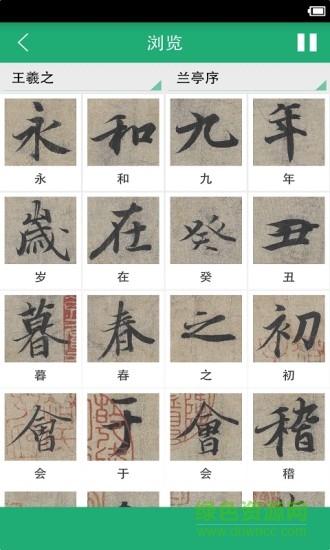 浏览
王羲之 兰亭序
永 和 九 年
永 和 九 年
歲 在 癸 丑
岁 在 癸 丑
暮 春 之 初
暮 春 之 初
會 于 會 稽
会 于 会 稽
绿色资源网
www.downcc.com